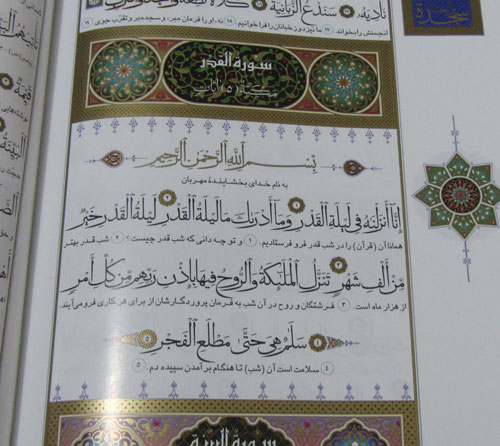 نَادِيَهُ ۝ سَنَدْعُ الزَّبَانِيَةَ ۝ كَلَّا
انجمنش را بخواند ۱۷ ما نیز دوزخبانان را فراخوانیم ۱۸ نه، او را فرمان مبر، و سجده بر و تقرّب جوی ۱۹
سجدة
سورة القدر
مكية (٥) آيات
بِسْمِ اللَّهِ الرَّحْمَٰنِ الرَّحِيمِ
به نام خدای بخشایندهٔ مهربان
إِنَّا أَنْزَلْنَاهُ فِي لَيْلَةِ الْقَدْرِ ۝ وَمَا أَدْرَاكَ مَا لَيْلَةُ الْقَدْرِ ۝ لَيْلَةُ الْقَدْرِ خَيْرٌ
همانا آن (قرآن) را در شب قدر فرو فرستادیم. ۱ و تو چه دانی که شب قدر چیست؟ ۲ شب قدر بهتر
مِنْ أَلْفِ شَهْرٍ ۝ تَنَزَّلُ الْمَلَائِكَةُ وَالرُّوحُ فِيهَا بِإِذْنِ رَبِّهِمْ مِنْ كُلِّ أَمْرٍ
از هزار ماه است. ۳ فرشتگان و روح در آن شب به فرمان پروردگارشان از برای هر کاری فرو می‌آیند
۴ سَلَامٌ هِيَ حَتَّىٰ مَطْلَعِ الْفَجْرِ ۵
۴ سلامت است آن (شب) تا هنگام برآمدن سپیده دم. ۵
سورة البينة